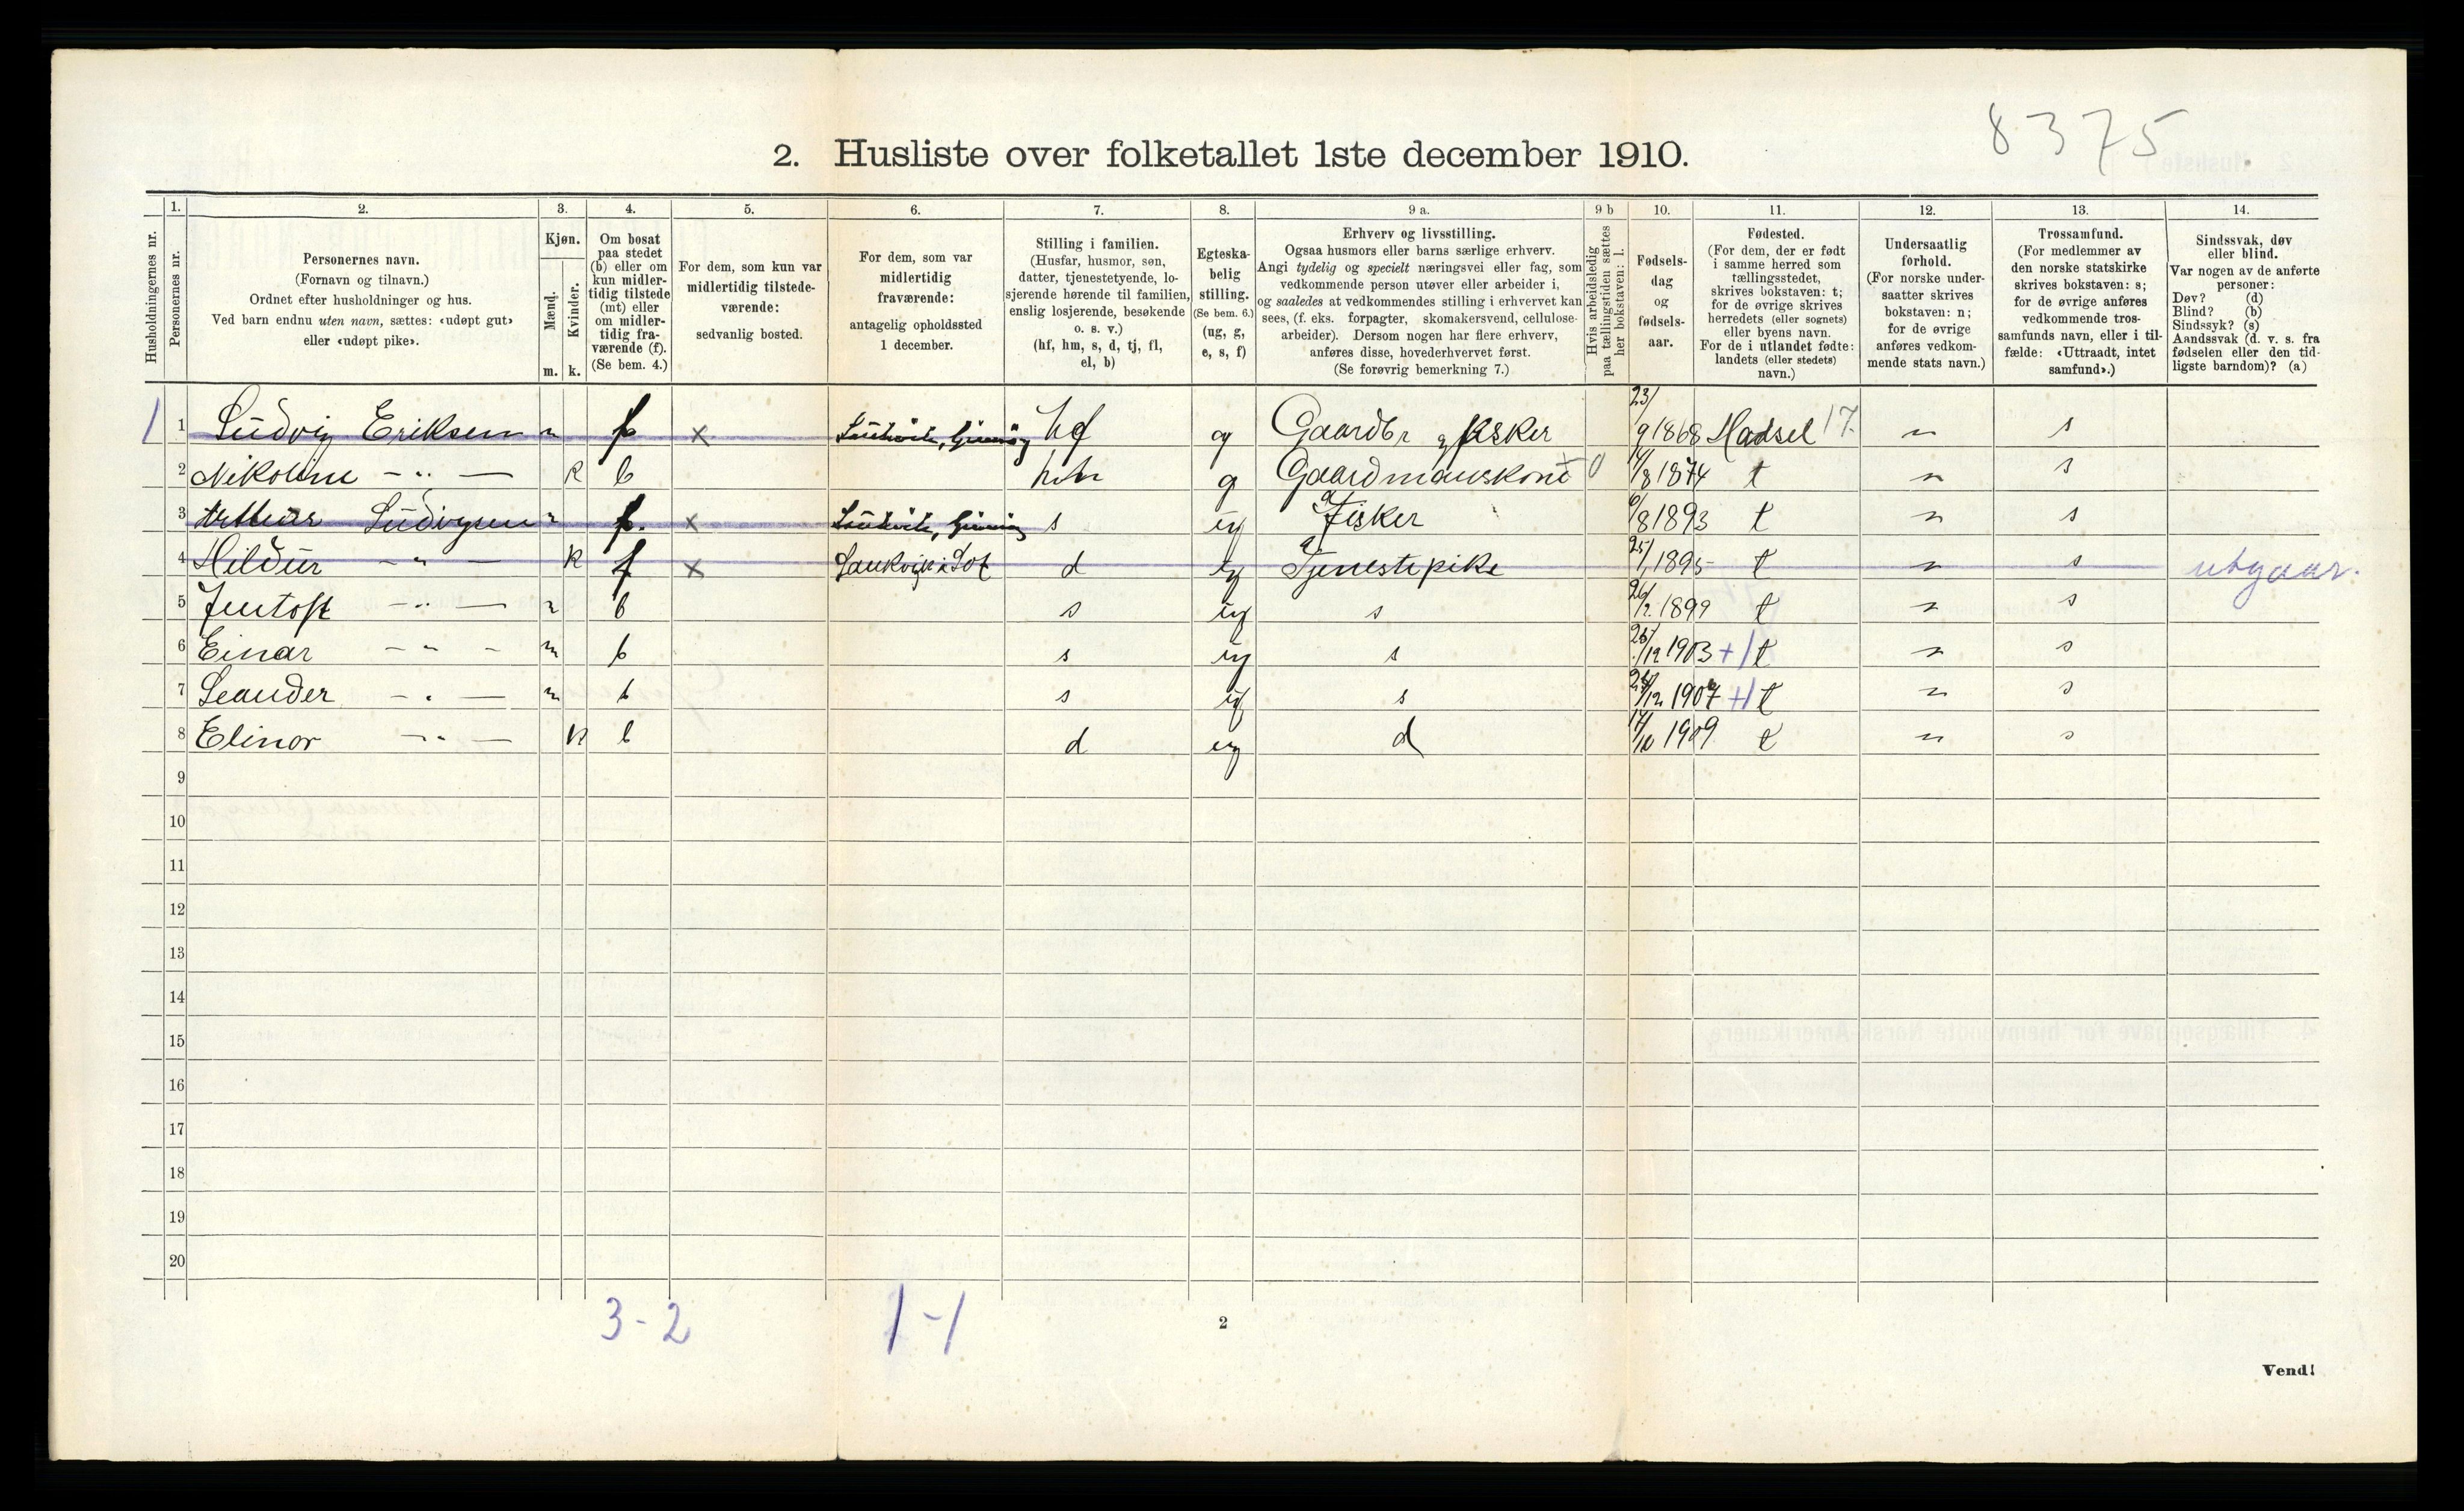 8375
2. Husliste over folketallet 1ste december 1910.
1. 2. 3. 4. 5. 6. 7. 8. 9 a. 9 b 10. 11. 12. 13. 14.
Husholdningernes nr.
Personernes nr.
Personernes navn.
(Fornavn og tilnavn.)
Ordnet efter husholdninger og hus.
Ved barn endnu uten navn, sættes: «udøpt gut»
eller «udøpt pike».
Kjøn.
Mænd.
Kvinder.
m. k.
Om bosat
paa stedet
(b) eller om
kun midler-
tidig tilstede
(mt) eller
om midler-
tidig fra-
værende (f).
(Se bem. 4.)
For dem, som kun var
midlertidig tilstede-
værende:
sedvanlig bosted.
For dem, som var
midlertidig
fraværende:
antagelig opholdssted
1 december.
Stilling i familien.
(Husfar, husmor, søn,
datter, tjenestetyende, lo-
sjerende hørende til familien,
enslig losjerende, besøkende
o. s. v.)
(hf, hm, s, d, tj, fl,
el, b)
Egteska-
belig
stilling.
(Se bem. 6.)
(ug, g,
e, s, f)
Erhverv og livsstilling.
Ogsaa husmors eller barns særlige erhverv.
Angi tydelig og specielt næringsvei eller fag, som
vedkommende person utøver eller arbeider i,
og saaledes at vedkommendes stilling i erhvervet kan
sees, (f. eks. forpagter, skomakersvend, cellulose-
arbeider). Dersom nogen har flere erhverv,
anføres disse, hovederhvervet først.
(Se forøvrig bemerkning 7.)
Hvis arbeidsledig
paa tællingstiden sættes
her bokstaven: l.
Fødsels-
dag
og
fødsels-
aar.
Fødested.
(For dem, der er født
i samme herred som
tællingsstedet,
skrives bokstaven: t;
for de øvrige skrives
herredets (eller sognets)
eller byens navn.
For de i utlandet fødte:
landets (eller stedets)
navn.)
Undersaatlig
forhold.
(For norske under-
saatter skrives
bokstaven: n;
for de øvrige
anføres vedkom-
mende stats navn.)
Trossamfund.
(For medlemmer av
den norske statskirke
skrives bokstaven: s;
for de øvrige anføres
vedkommende tros-
samfunds navn, eller i til-
fælde: «Uttraadt, intet
samfund».)
Sindssvak, døv
eller blind.
Var nogen av de anførte
personer:
Døv? (d)
Blind? (b)
Sindssyk? (s)
Aandssvak (d. v. s. fra
fødselen eller den tid-
ligste barndom)? (a)
1 1 Ludvig Eriksen m f x hf g Gaardbr og fisker 23/9 1868 Hadsel 17. n s
2 Nikoline -"- k b hm g Gaardmanskone 0 14/8 1874 t n s
3 Ludvigsen m f. x s ug Fisker 6/8 1893 t n s
4 Hildur -"- k f x d ug Tjenestepike 25/1 1895 t n s utgaar.
5 Jentoft -"- m b s ug s 26/2 1899 t n s
6 Einar -"- m b s ug s 26/12 1903 +1 t n s
7 Leander -"- m b s ug s /12 1907 +1 t n s
8 Elinor -"- k b d ug d 14/10 1909 t n s
9
10
11
12
13
14
15
16
17
18
19
20
3-2 1-1
2
Vend!